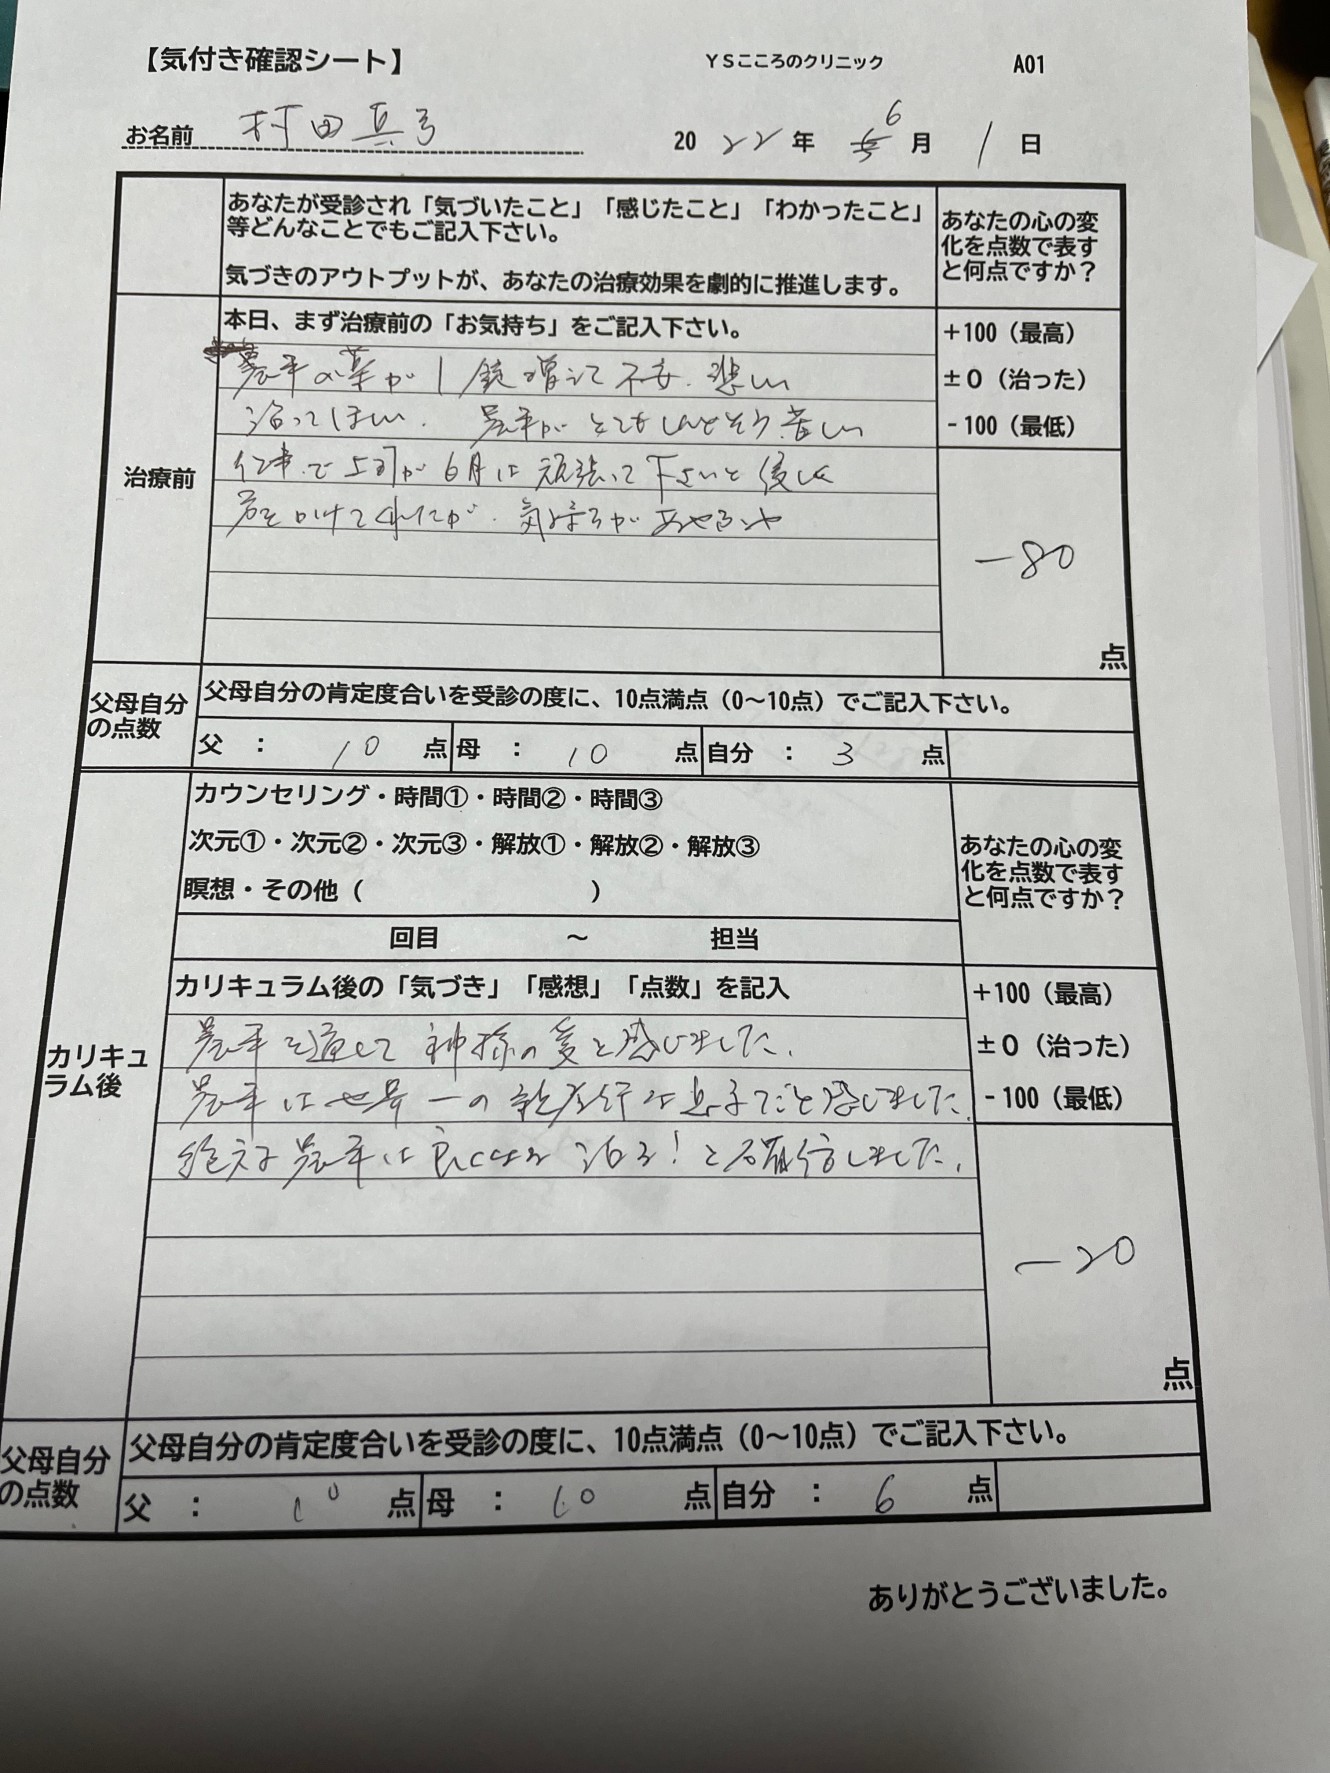 【気付き確認シート】 YSこころのクリニック A01
お名前 村田真弓 2022年 6月 1日
あなたが受診され「気づいたこと」「感じたこと」「わかったこと」
等どんなことでもご記入下さい。
気づきのアウトプットが、あなたの治療効果を劇的に推進します。
あなたの心の変
化を点数で表す
と何点ですか？
治療前
本日、まず治療前の「お気持ち」をご記入下さい。
の薬が1錠増えて不安.悲しい
治ってほしい. がとてもしんどそう.苦しい
仕事で上司が6月は頑張って下さいと優しく
声をかけてくれたが.気持ちが
+100（最高）
±0（治った）
-100（最低）
-80
点
父母自分
の点数
父母自分の肯定度合いを受診の度に、10点満点（0～10点）でご記入下さい。
父 ： 10 点 母 ： 10 点 自分 ： 3 点
カリキュ
ラム後
カウンセリング・時間①・時間②・時間③
次元①・次元②・次元③・解放①・解放②・解放③
瞑想・その他（ ）
回目 ～ 担当
あなたの心の変
化を点数で表す
と何点ですか？
カリキュラム後の「気づき」「感想」「点数」を記入
を通して神様の愛を感じました.
は世界一の親孝行な息子だと感じました.
絶対は良くなる 治る！と確信しました.
+100（最高）
±0（治った）
-100（最低）
-20
点
父母自分
の点数
父母自分の肯定度合いを受診の度に、10点満点（0～10点）でご記入下さい。
父 ： 10 点 母 ： 10 点 自分 ： 6 点
ありがとうございました。